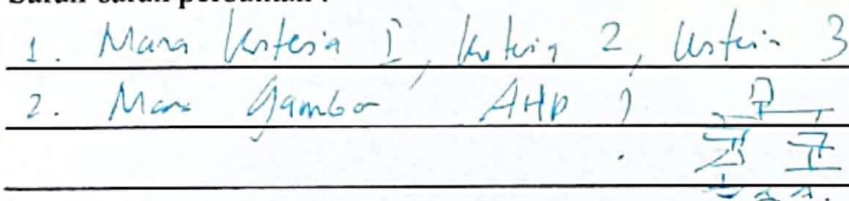 Saran-saran perbaikan :
1. Mana kriteria 1, kriteria 2, kriteria 3
2. Mana Gambar AHP ?